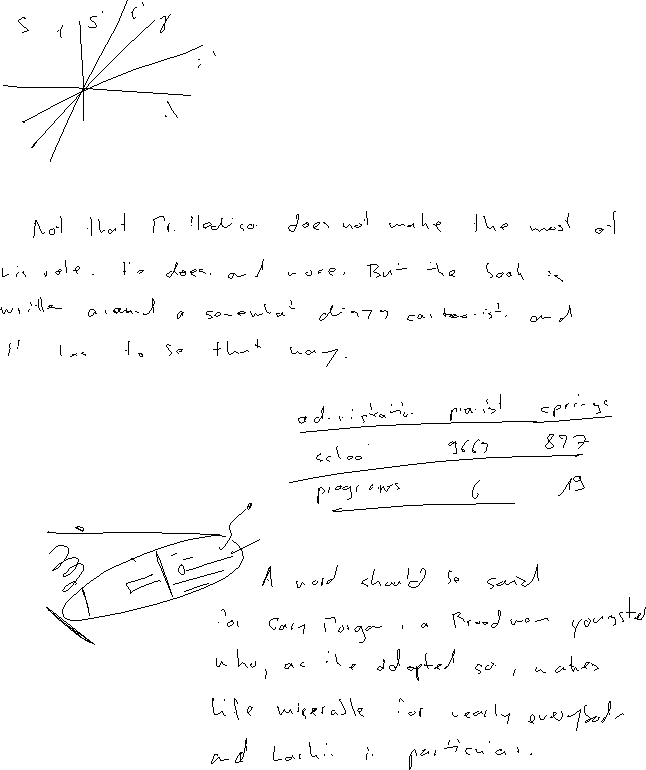 S
Not that Mr. Madison does not make the most of
his role. He does and more. But the book is
written around a somewhat dizzy cartoonist and
it has to be that way.
administration pianist springs
school 9669 877
programs 6 19
A word should be said
for Gary Morgan, a Broadway youngster
who, as the adopted son, makes
life miserable for nearly everybody
and Larkin in particular.